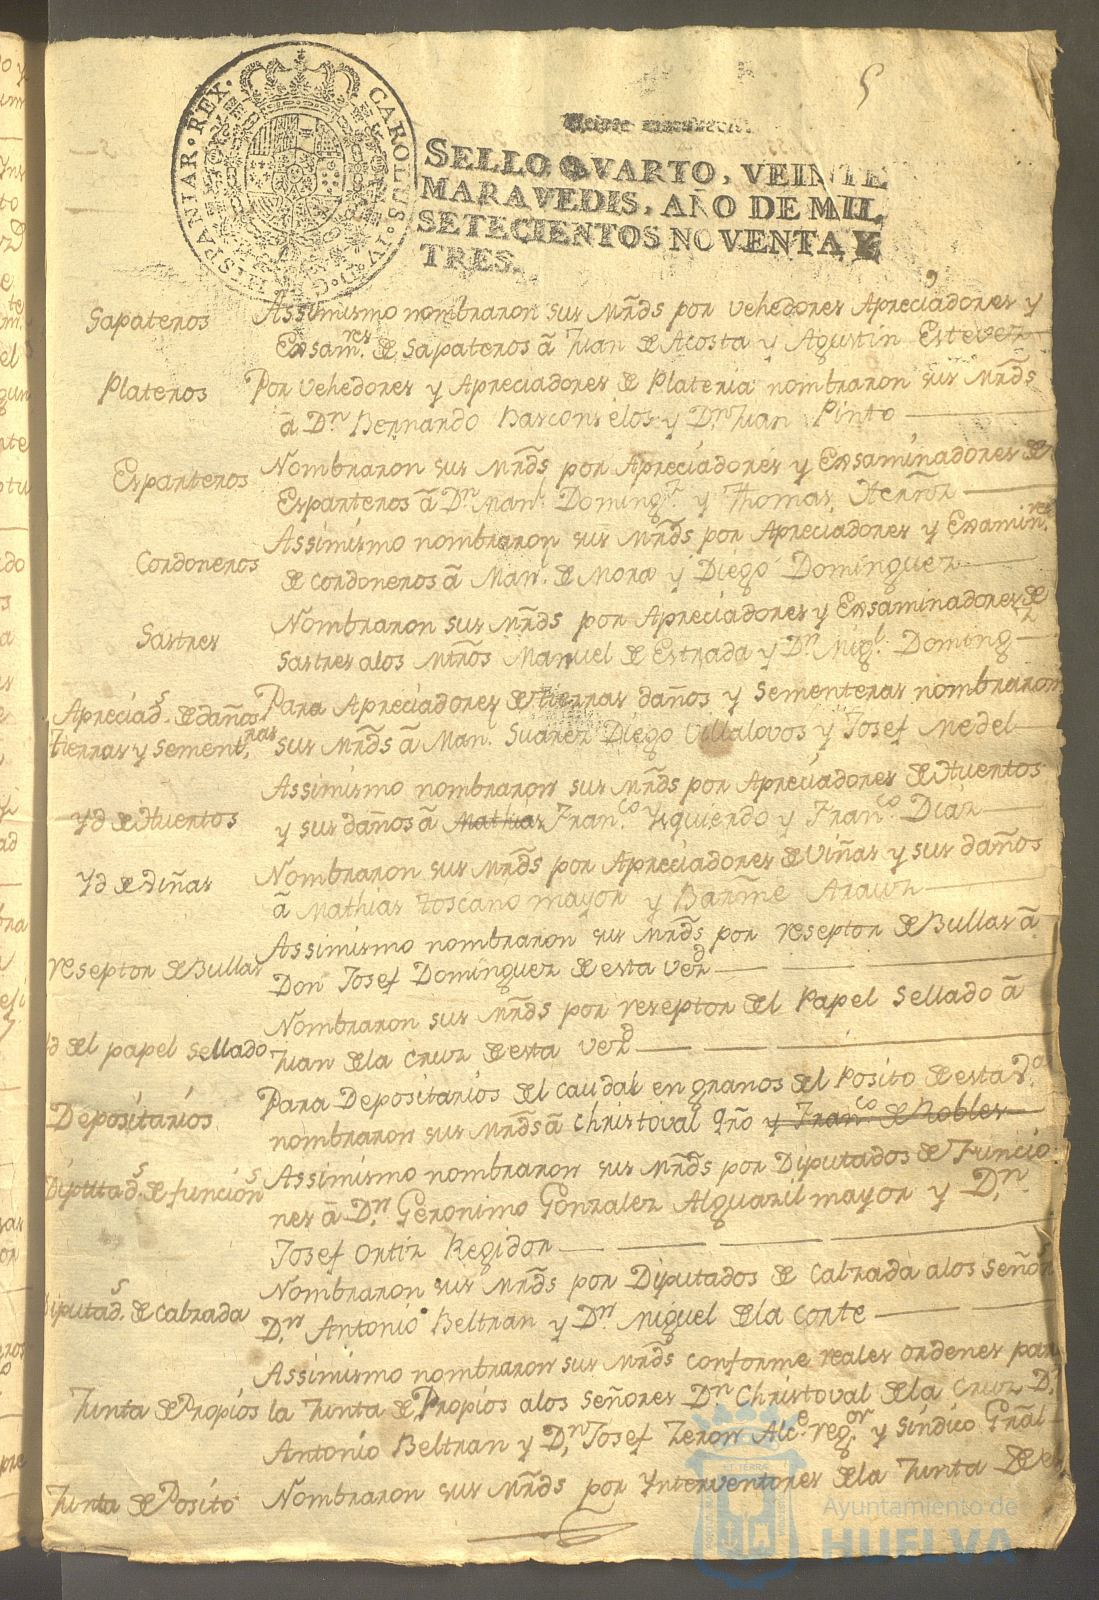 5
CAROLUS. IV. D. G. HISPANIAR. REX.
SELLO QVARTO, VEINTE
MARAVEDIS, AÑO DE MIL
SETECIENTOS NOVENTA Y
TRES.
Sapateros Assimismo nombraron sus Mrds por vehedores Apreciadores y
Exsam.res de Sapateros â Juan de Acosta y Agustin Estevez
Plateros Por vehedores y Apreciadores de Plateria nombraron sus Mrds
â Dn Bernardo Basconselos y Dn Juan Pinto
Esparteros Nombraron sus Mrds por Apreciadores y Exsaminadores de
Esparteros â Dn Man.l Doming.z y Thomas
Cordoneros Assimismo nombraron sus Mrds por Apreciadores y Examin.res
de cordoneros â Man.l de Mora y Diego Dominguez
Sastres Nombraron sus Mrds por Apreciadores y Exsaminadores de
Sastres alos Mtros Manuel de Estrada y Dn Mig.l Doming
Apreciad.s de daños Para Apreciadores de tierras daños y Sementeras nombraron
tierras y Sement.ras sus Mrds â Man. Suarez Diego Villalovos y Josef Medel
Yd de Huertos Assimismo nombraron sus Mrds por Apreciadores de Huertos
y sus daños â Mathias Fran.co Ysquierdo y Fran.co Diaz
Yd de viñas Nombraron sus Mrds por Apreciadores de Viñas y sus daños
â Mathias Toscano mayor y Barme Arauz
reseptor de Bullas Assimismo nombraron sus Mrds por reseptor de Bullas â
Don Josef Dominguez de esta vezd
Yd del papel sellado Nombraron sus Mrds por reseptor del Papel Sellado â
Juan de la Cruz de esta vezd
Depositarios Para Depositarios del caudal en granos del Posito de esta V.a
nombraron sus Mrds â Christoval Qro y Fran.co de Robles
Diputad.s de funcion.s Assimismo nombraron sus Mrds por Diputados de Funcio
nes â D.n Geronimo Gonzalez Alguazil mayor y D.n
Josef Ortiz Regidor
Diputad.s de calzada Nombraron sus Mrds por Diputados de Calzada alos Señor
D.n Antonio Beltran y Dn Miguel de la Corte
Assimismo nombraron sus Mrds conforme reales ordenes para
Junta de Propios la Junta de Propios alos Señores Dn Christoval de la Cruz D.n
Antonio Beltran y D.n Josef Zeron Alc.e reg.or y Sindico Gral
Junta de Posito Nombraron sus Mrds por Ynterventores de la Junta
Ayuntamiento de
HUELVA